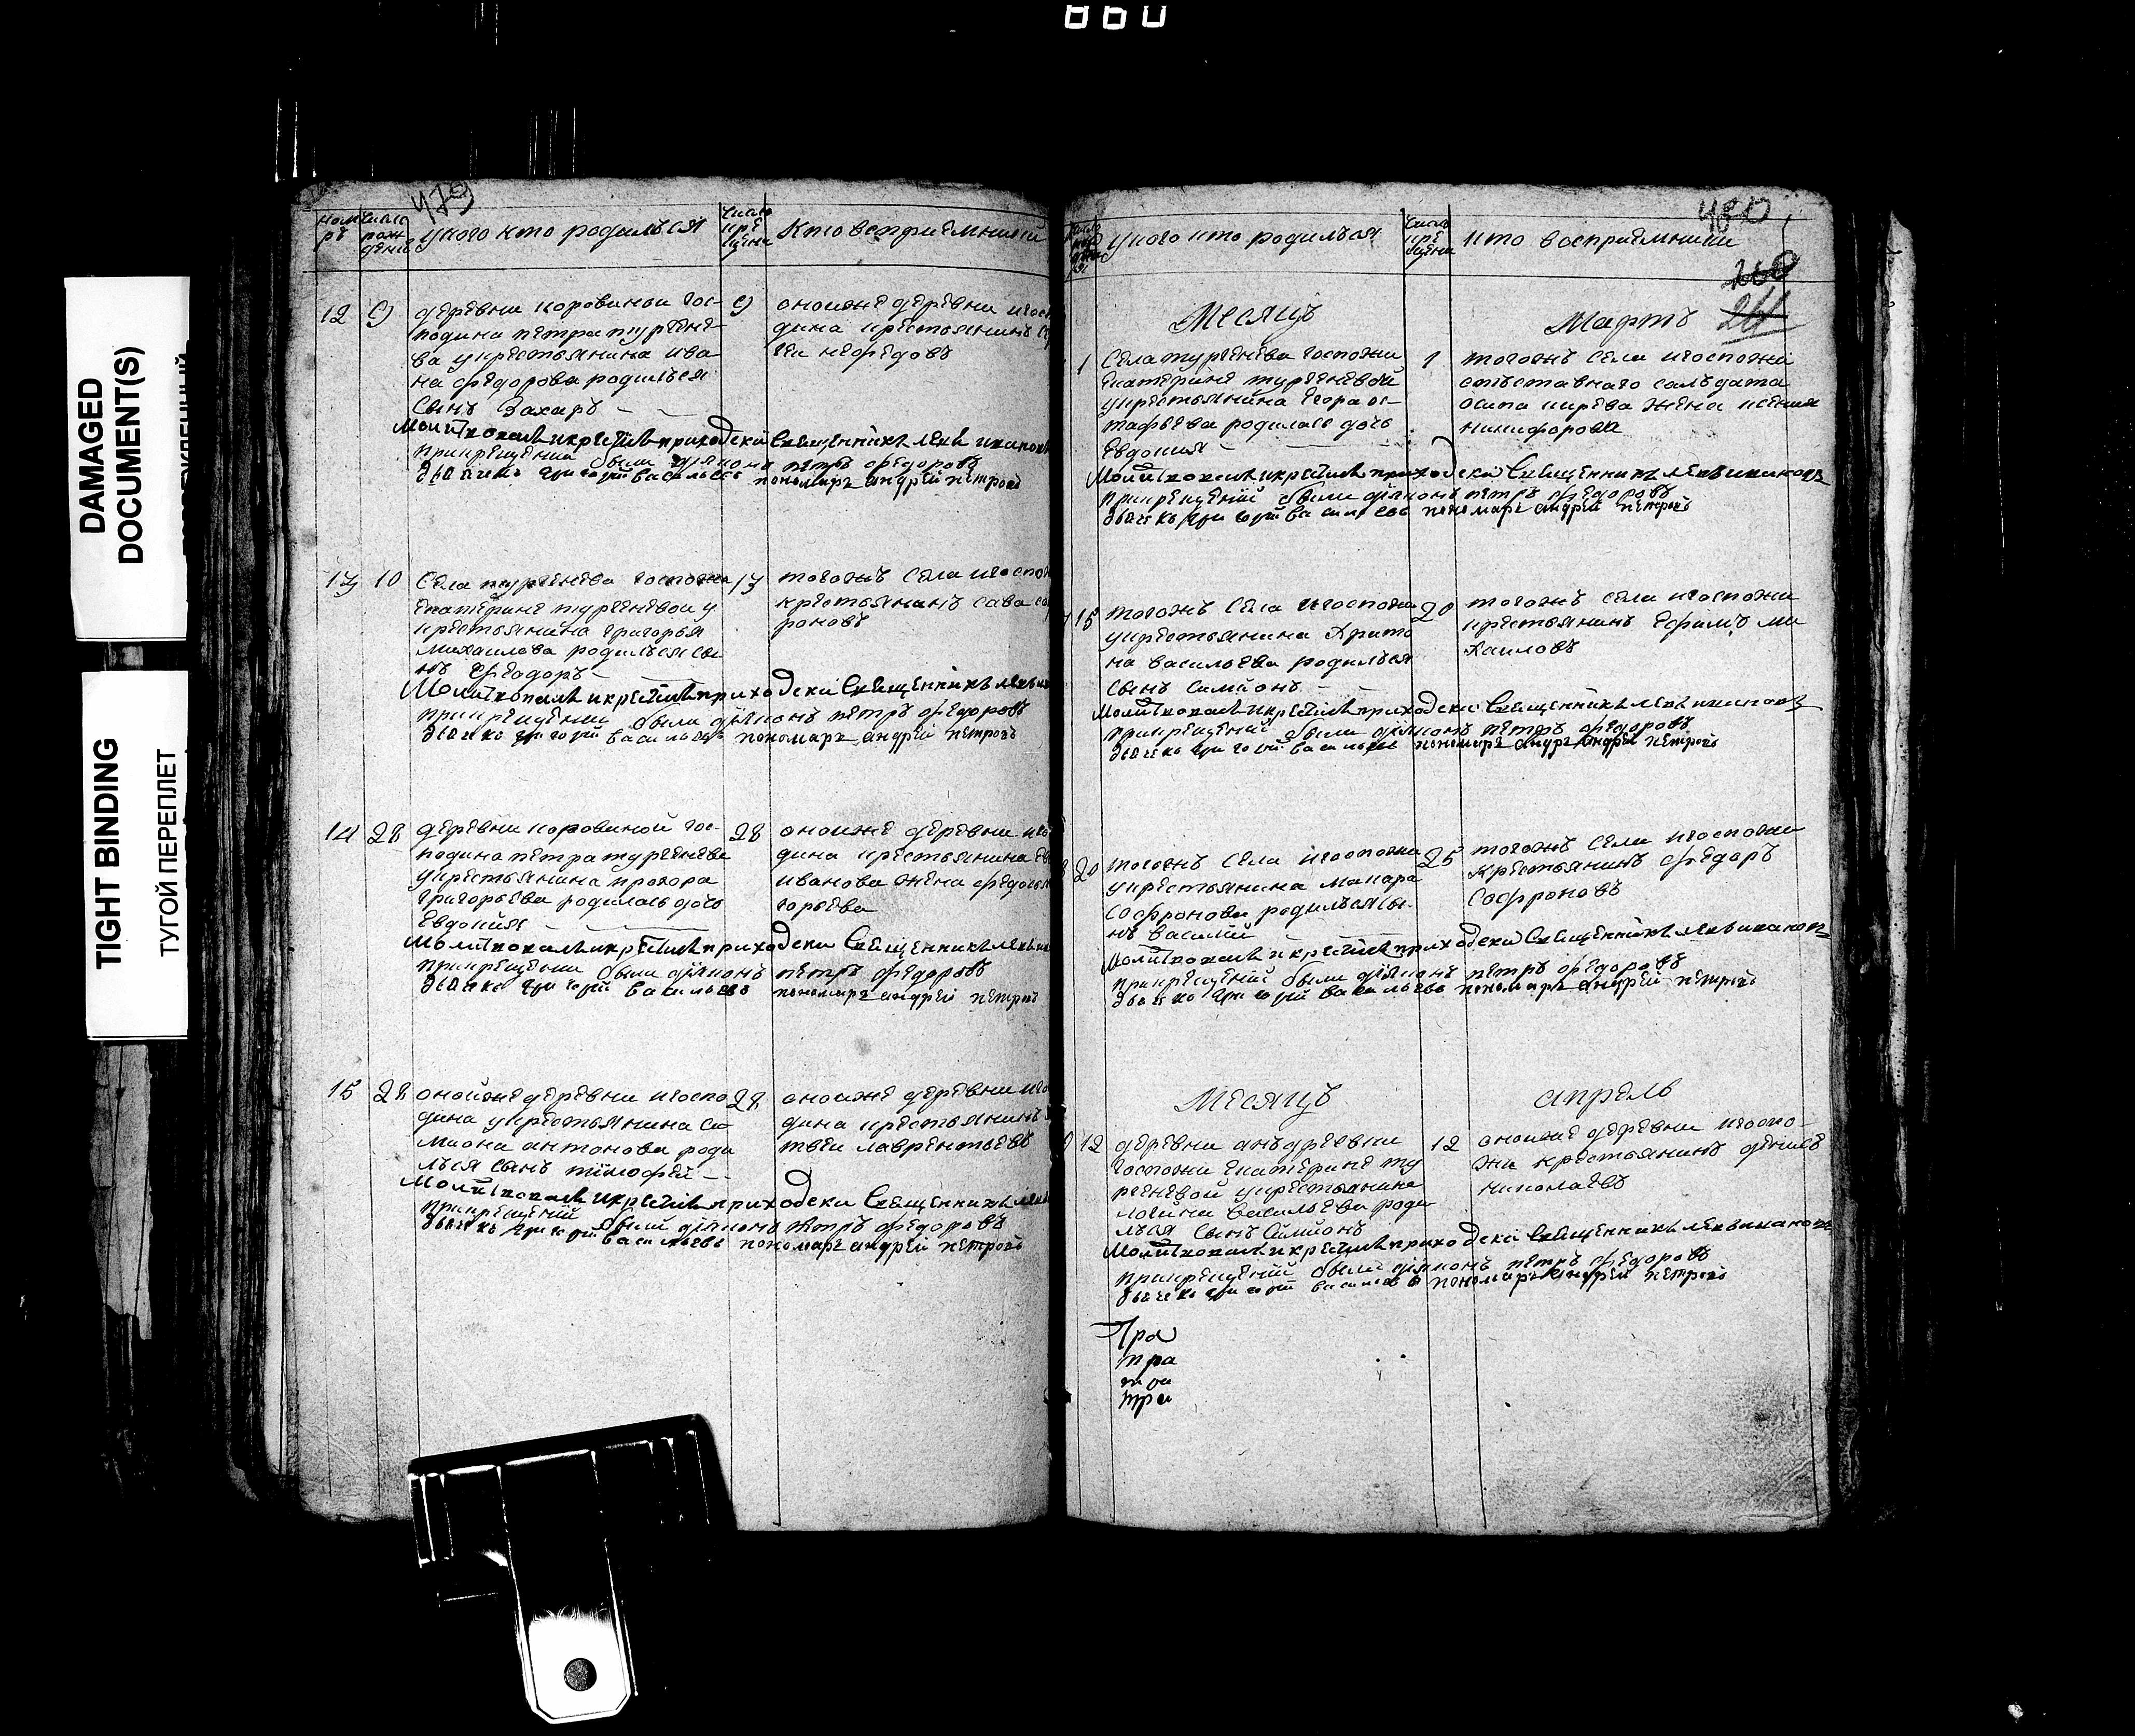 860
DAMAGED
DOCUMENT(S)
TIGHT BINDING
ТУГОЙ ПЕРЕПЛЕТ
479
номръ
число рождения
у кого кто родился
число крещения
кто восприемники
12
9
деревни коровиной гос-
подина петра тургене-
ва у крестьянина ива
на федорова родилъся
сынъ Захаръ
9
оной же деревни и гос
дина крестьянинъ
неѳедовъ
Молитвовалъ и крестилъ приходской Священникъ Левъ
при крещении были диаконъ петръ федоровъ
дьячекъ григорий васильевъ пономарь андрей петровъ
13
10
Села тургенева госпожи
Екатерине тургеневой у
крестьянина григорья
михайлова родилъся сы-
нъ Феодоръ
13
тогожъ села и госпож
крестьянинъ сава со
роновъ
Молитвовалъ и крестилъ приходской Священникъ Левъ
при крещении были диаконъ петръ федоровъ
дьячекъ григорий васильевъ пономарь андрей петровъ
14
28
деревни коровиной гос-
подина петра тургенева
у крестьянина прохора
григорьева родилась дочь
Евдокия
28
оной же деревни и го
дина крестьянина
иванова жена федосья
горьева
Молитвовалъ и крестилъ приходской Священникъ Левъ
при крещении были диаконъ петръ федоровъ
дьячекъ григорий васильевъ пономарь андрей петровъ
15
28
оной же деревни и госпо
дина у крестьянина си
миона антонова роди
лъся сынъ тимофей
28
оной же деревни и го
дина крестьянинъ
твей лаврентьевъ
Молитвовалъ и крестилъ приходской Священникъ Левъ
при крещений были диаконъ петръ федоровъ
дьячекъ григорий васильевъ пономарь андрей петровъ
480
у кого кто родилъся
число крещения
кто восприемники
Месяцъ
Мартъ
1
Села тургенева госпожи
Екатерине тургеневой
у крестьянина Егора ос-
тафьева родилась дочь
Евдокия
1
тогожъ села и госпожи
отставнаго салъдата
осипа жена ксения
никифорова
Молитвовалъ и крестилъ приходской Священникъ Левъ ивановъ
при крещений были диаконъ петръ федоровъ
дьячекъ григорий васильевъ пономарь андрей петровъ
15
тогожъ села и госпожи
у крестьянина Харито
на васильева родилъся
сынъ симионъ
20
тогожъ села и госпожи
крестьянинъ Ефимъ ми
хаиловъ
Молитвовалъ и крестилъ приходской Священникъ Левъ ивановъ
при крещений были диаконъ петръ федоровъ
дьячекъ григорий васильевъ пономарь андрей петровъ
20
тогожъ села и госпожи
у крестьянина макара
софронова родилъся сы-
нъ василий
25
тогожъ села и госпожи
крестьянинъ федоръ
софроновъ
Молитвовалъ и крестилъ приходской Священникъ Левъ ивановъ
при крещений были диаконъ петръ федоровъ
дьячекъ григорий васильевъ пономарь андрей петровъ
Месяцъ
апрель
12
деревни андреевки
госпожи Екатерине ту
ргеневой у крестьянина
логина васильева роди
лъся сынъ симионъ
12
оной же деревни и госпо-
жи крестьянинъ денисъ
николаевъ
Молитвовалъ и крестилъ приходской Священникъ Левъ ивановъ
при крещений были диаконъ петръ федоровъ
дьячекъ григорий васильевъ пономарь андрей петровъ